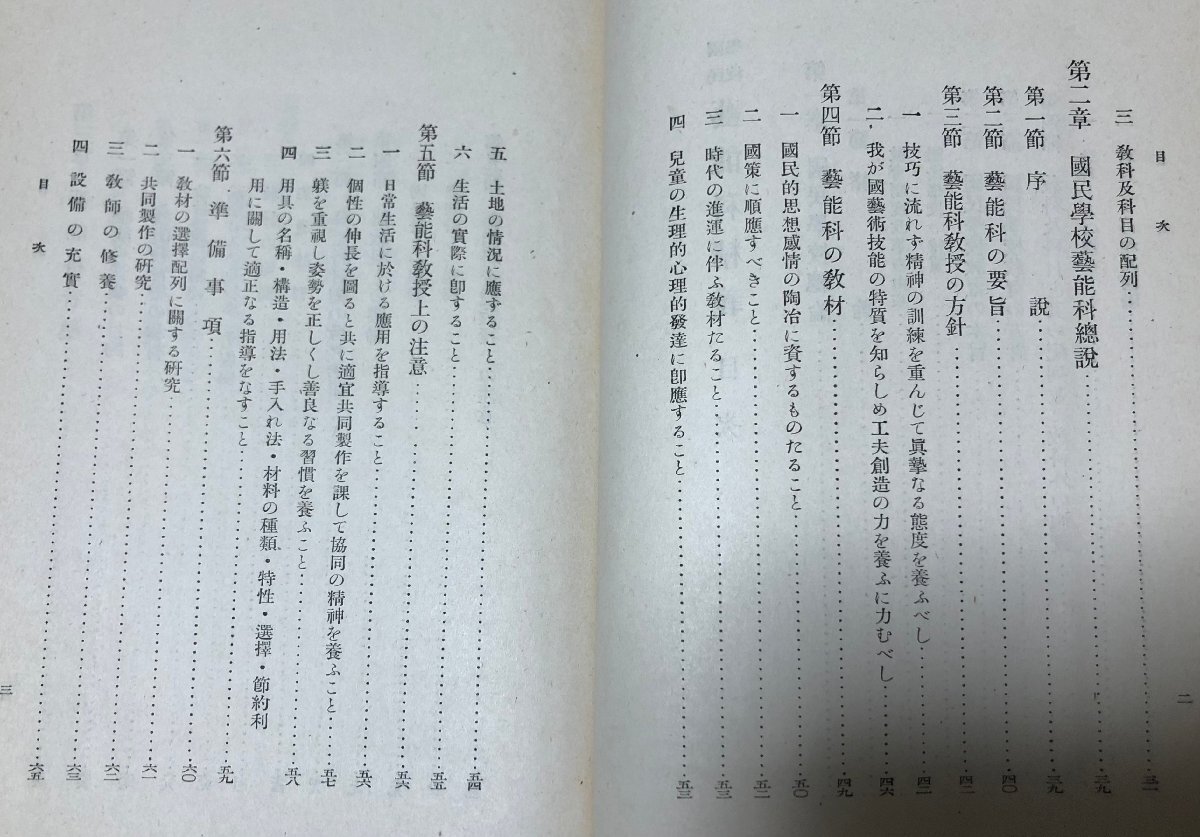 目次
三 教科及科目の配列……三一
第二章 國民學校藝能科總說……三九
第一節 序說……三九
第二節 藝能科の要旨……四〇
第三節 藝能科教授の方針……四二
一 技巧に流れず精神の訓練を重んじて眞摯なる態度を養ふべし……四二
二、我が國藝術技能の特質を知らしめ工夫創造の力を養ふに力むべし……四六
第四節 藝能科の教材……四九
一 國民的思想感情の陶冶に資するものたること……五〇
二 國策に順應すべきこと……五二
三 時代の進運に伴ふ教材たること……五三
四 兒童の生理的心理的發達に卽應すること……五三
二
五 土地の情況に應ずること……五四
六 生活の實際に卽すること……五五
第五節 藝能科教授上の注意……五五
一 日常生活に於ける應用を指導すること……五六
二 個性の伸長を圖ると共に適宜共同製作を課して協同の精神を養ふこと……五六
三 躾を重視し姿勢を正しくし善良なる習慣を養ふこと……五七
四 用具の名稱・構造・用法・手入れ法・材料の種類・特性・選擇・節約利
用に關して適正なる指導をなすこと……五八
第六節 準備事項……五九
一 教材の選擇配列に關する研究……六〇
二 共同製作の研究……六一
三 教師の修養……六二
四 設備の充實……六三
目次
三
六五